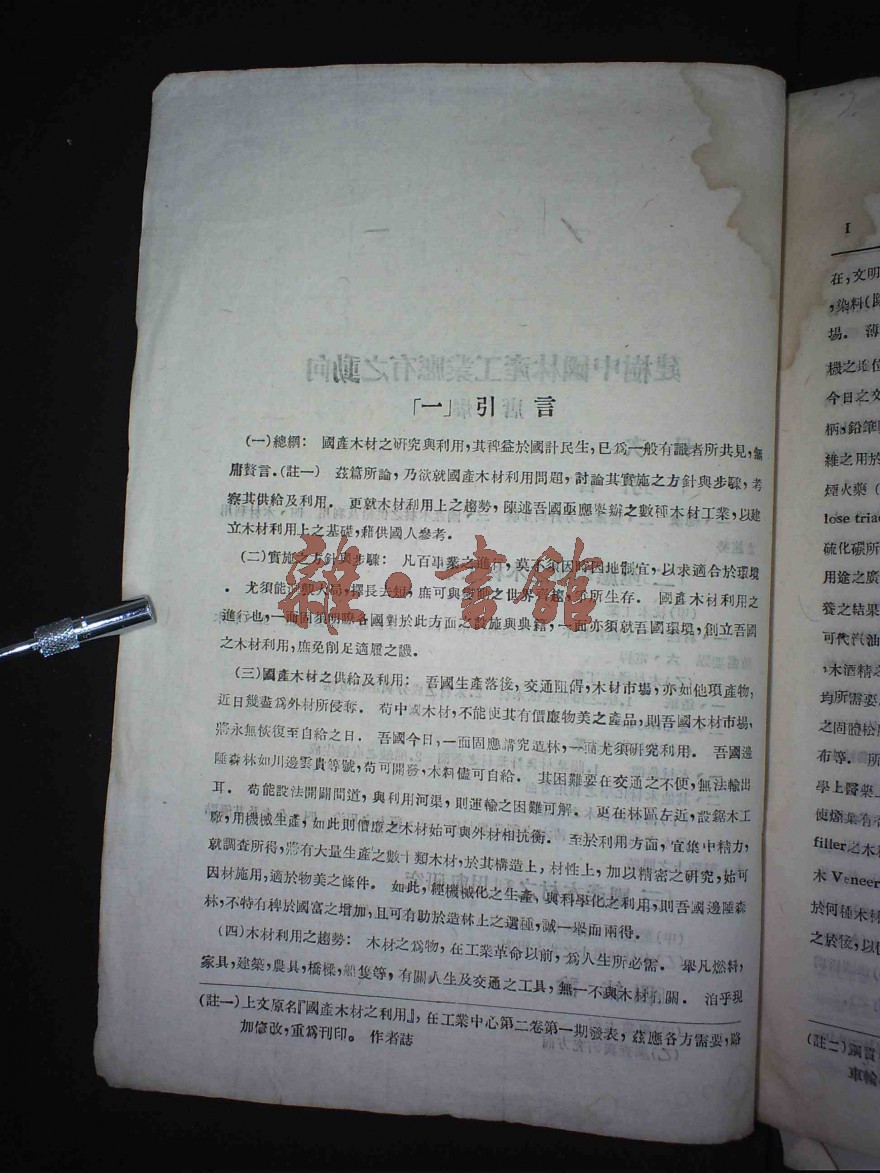 「一」引言
(一)總綱: 國產木材之研究與利用,其裨益於國計民生,已爲一般有識者所共見,無
庸贅言.(註一) 茲篇所論,乃欲就國產木材利用問題,討論其實施之方針與步驟,考
察其供給及利用. 更就木材利用上之趨勢,陳述吾國亟應舉辦之數種木材工業,以建
立木材利用上之基礎,藉供國人參考.
(二)實施之方針與步驟: 凡百事業之進行,莫不須因時因地制宜,以求適合於環境
. 尤須能 擇長去短,庶可與 之世界 所生存. 國產木材利用之
進行也,一面固須明瞭各國對於此方面之設施與典籍,一面亦須就吾國環境,創立吾國
之木材利用,庶免削足適履之譏.
(三)國產木材之供給及利用: 吾國生產落後,交通阻碍,木材市場,亦如他項產物,
近日幾盡爲外材所侵奪. 苟中國木材,不能使其有價廉物美之產品,則吾國木材市場,
將永無恢復至自給之日. 吾國今日,一面固應講究造林,一面尤須研究利用. 吾國邊
陲森林如川邊雲貴等號,苟可開發,木料儘可自給. 其困難要在交通之不便,無法輸出
耳. 苟能設法開闢間道,與利用河渠,則運輸之困難可解. 更在林區左近,設鋸木工
廠,用機械生產,如此則價廉之木材始可與外材相抗衡. 至於利用方面,宜集中精力,
就調查所得,將有大量生產之數十類木材,於其構造上,材性上,加以精密之研究,始可
因材施用,適於物美之條件. 如此,經機械化之生產,與科學化之利用,則吾國邊陲森
林,不特有裨於國富之增加,且可有助於造林上之選種,誠一舉而兩得.
(四)木材利用之趨勢: 木材之爲物,在工業革命以前,爲人生所必需. 舉凡燃料,
家具,建築,農具,橋樑,船隻等,有關人生及交通之工具,無一不與木材有關. 洎乎現
(註一)上文原名『國產木材之利用』,在工業中心第二卷第一期發表,茲應各方需要,略
加修改,重爲刊印。 作者誌
雜·書館
I
在,文明
,染料(
場. 薄
機之地位
今日之文
柄,鉛筆
維之用於
煙火藥(
lose triac
硫化碳所
用途之廣
養之結果
可代汽油
,木酒精之
均所需要
之固體松
布等. 所
學上醫藥上
使燔業有
filler之木
木 Veneer
於何種木材
之於後,以
(註二)鋼貫
車輪